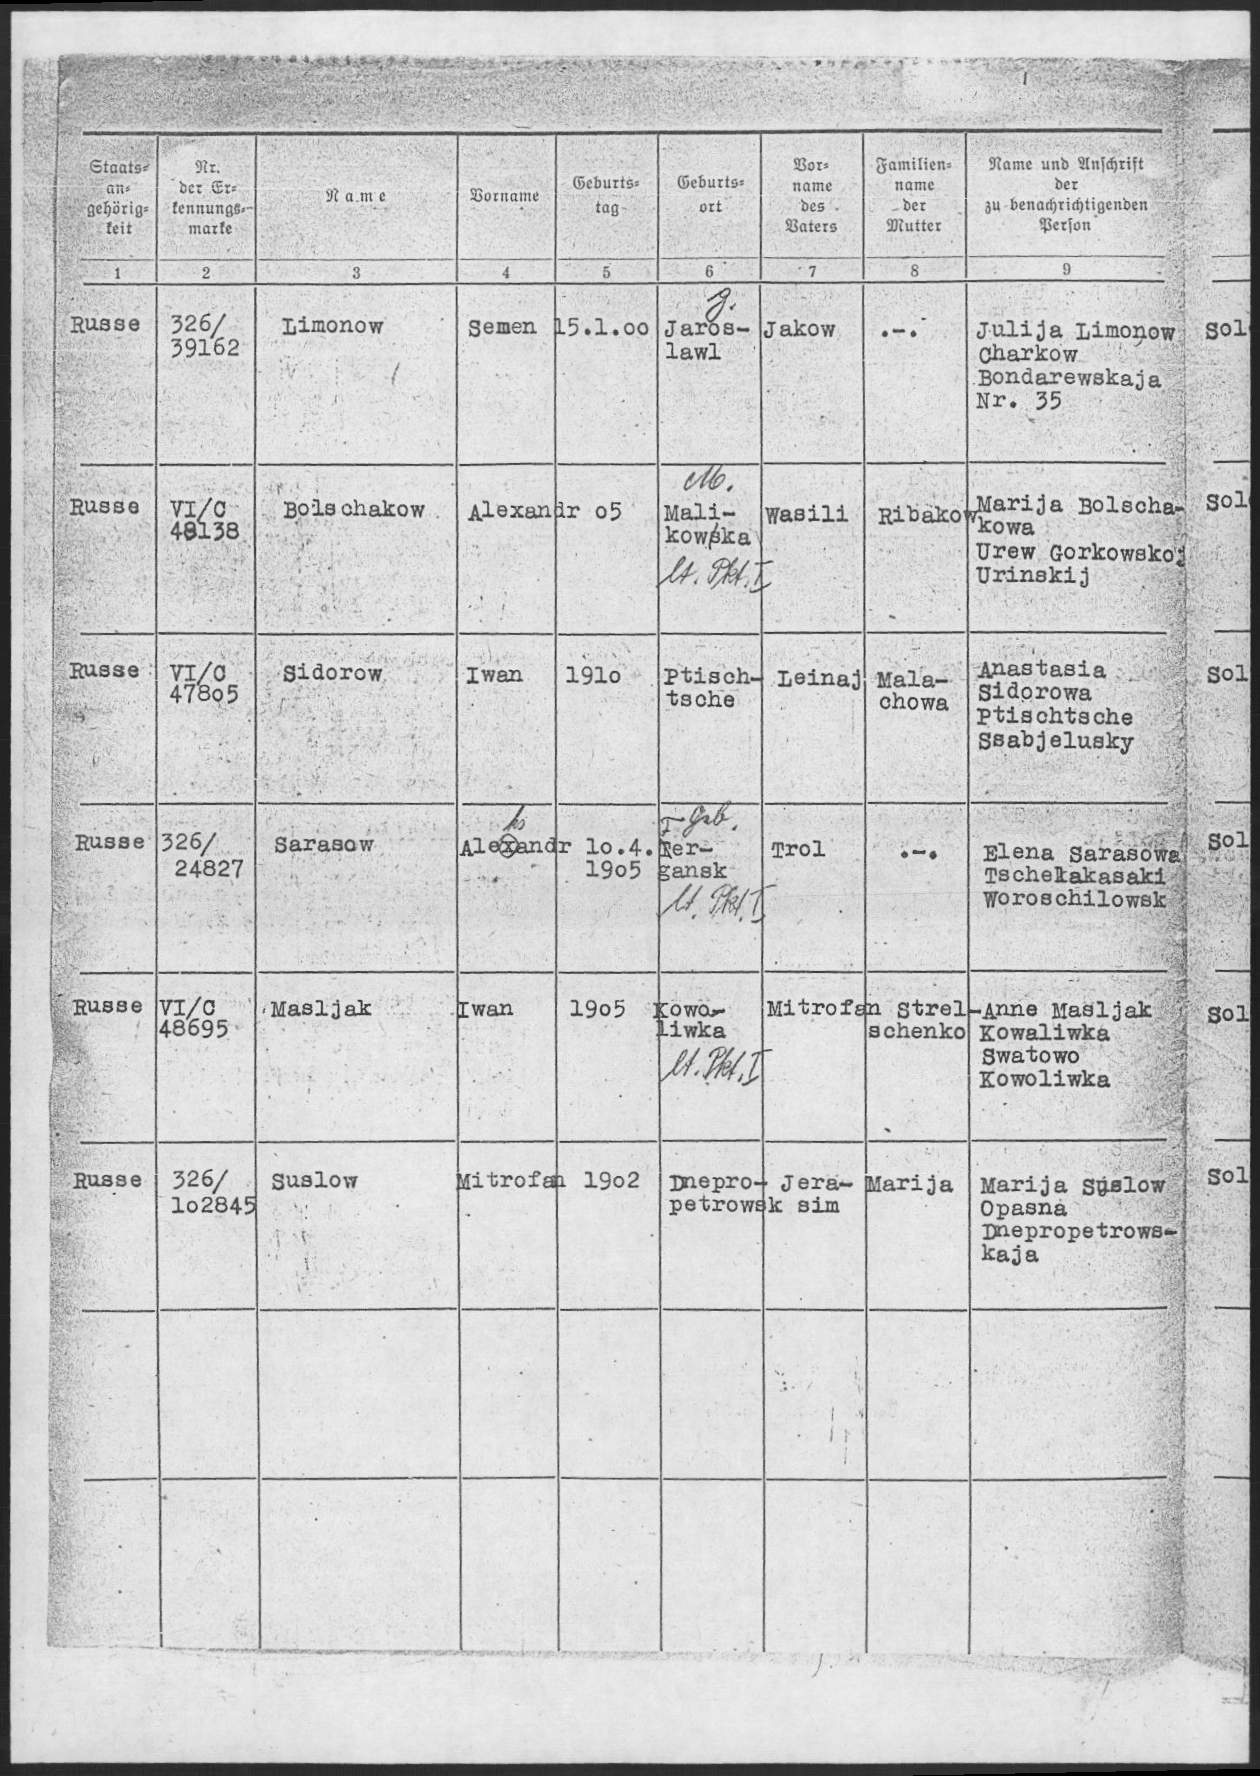 Staats-
an-
gehörig-
keit
Nr.
der Er-
kennungs-
marke
Name
Vorname
Geburts-
tag
Geburts-
ort
Vor-
name
des
Vaters
Familien-
name
der
Mutter
Name und Anschrift
der
zu benachrichtigenden
Person
1 2 3 4 5 6 7 8 9
Russe
326/
39162
Limonow
Semen
15.1.oo
Jaros-
lawl
Jakow
.-.
Julija Limonow
Charkow
Bondarewskaja
Nr. 35
Sol
Russe
VI/C
48138
Bolschakow
Alexandr
o5
M.
Mali-
kowska
lt. Pkt. I
Wasili
Ribakow
Marija Bolscha-
kowa
Urew Gorkowskoj
Urinskij
Sol
Russe
VI/C
478o5
Sidorow
Iwan
191o
Ptisch-
tsche
Leinaj
Mala-
chowa
Anastasia
Sidorowa
Ptischtsche
Ssabjelusky
Sol
Russe
326/
24827
Sarasow
ks
Alexandr
1o.4.
19o5
F Geb.
Rer-
gansk
lt. Pkt. I
Trol
.-.
Elena Sarasowa
Tschekakasaki
Woroschilowsk
Sol
Russe
VI/C
48695
Masljak
Iwan
19o5
Kowo-
liwka
lt. Pkt. I
Mitrofan
Strel-
schenko
Anne Masljak
Kowaliwka
Swatowo
Kowoliwka
Sol
Russe
326/
1o2845
Suslow
Mitrofan
19o2
Dnepro-
petrowsk
Jera-
sim
Marija
Marija Suslow
Opasna
Dnepropetrows-
kaja
Sol